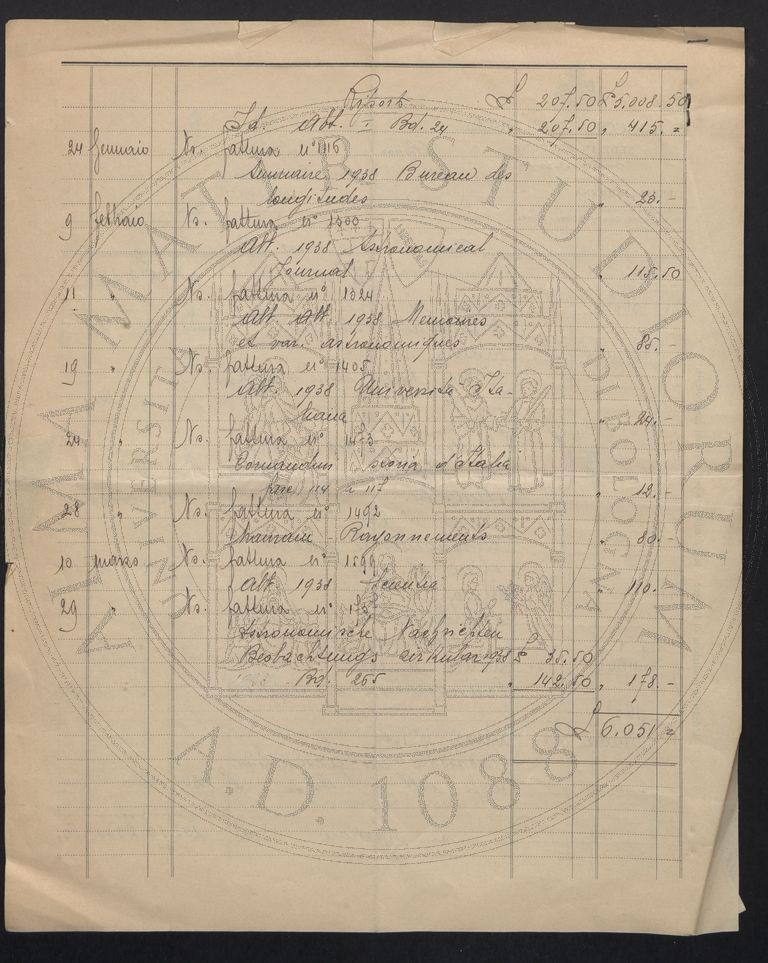 Riporto £ 207.50 £ 5.008.50
Id. Abt. I Bd. 24 " 207.50 " 415.=
24 Gennaio Ns. fattura n° 1116
Annuaire 1938 Bureau des
longitudes " 23.-
9 febbraio Ns. fattura n° 1300
Abb. 1938 Astronomical
Journal " 115.50
11 " Ns. fattura n° 1324
Abb. 1938 Memoires
et var. astronomiques " 85.-
19 " Ns. fattura n° 1405
Abb. 1938 Università Ita-
liana " 24.-
24 " Ns. fattura n° 1473
storia d'Italia
fasc. 114 a 117 " 12.-
28 " Ns. fattura n° 1492
Rayonnements " 80.-
10 marzo Ns. fattura n° 1599
Abb. 1938 Scientia " 110.-
29 " Ns. fattura n°
Astronomische Nachrichten
Beobachtungs cirkular 1938 £ 35.50
Bd. 265 " 142.50 " 178.-
£ 6.051=
ALMA MATER STUDIORUM
UNIVERSITÀ DI BOLOGNA
A.D. 1088